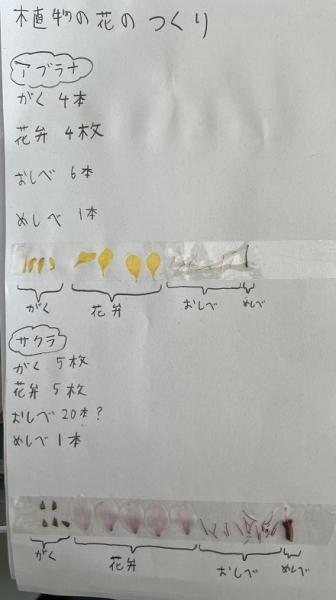 植物の花のつくり
アブラナ
がく 4本
花弁 4枚
おしべ 6本
めしべ 1本
がく 花弁 おしべ めしべ
サクラ
がく 5枚
花弁 5枚
おしべ 20本?
めしべ 1本
がく 花弁 おしべ めしべ